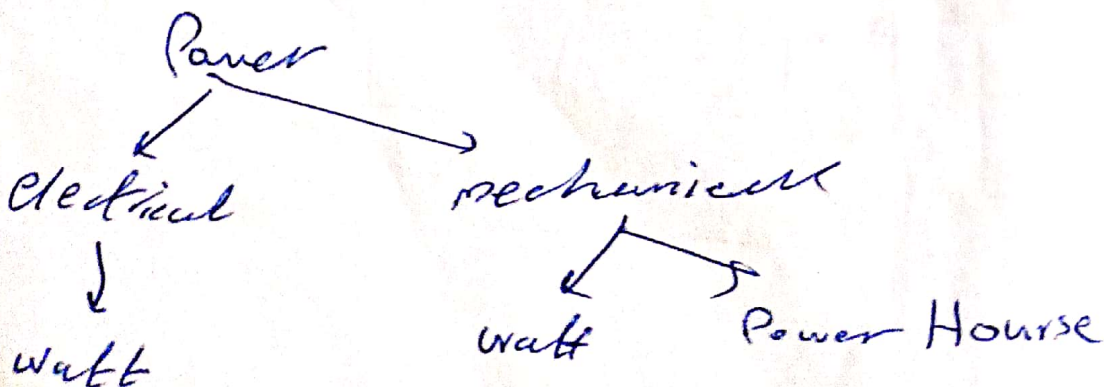 Power
electrical mechanical
watt Power Hourse
watt